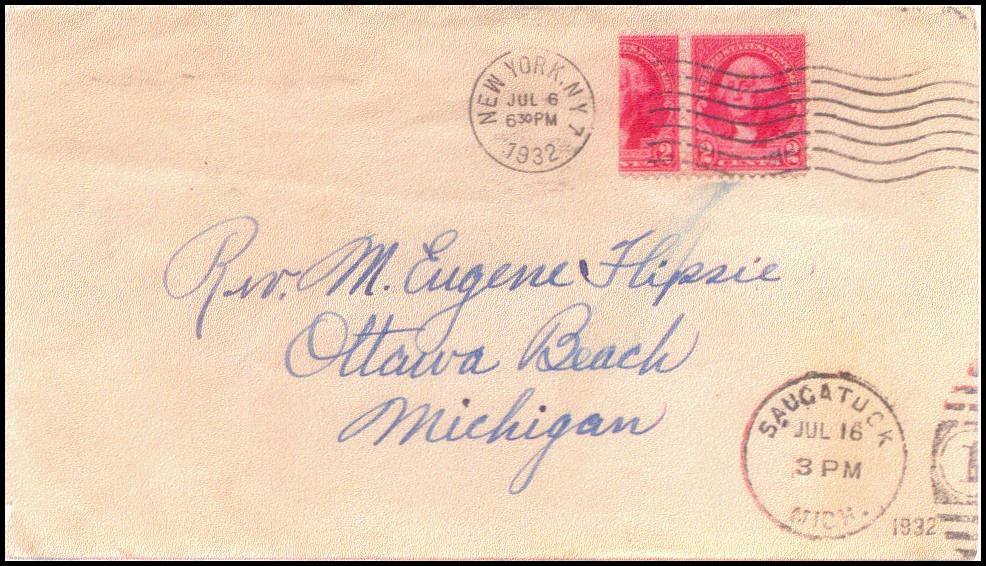 NEW YORK, N.Y. 7
JUL 6
6 30 PM
1932
2 2 2
CENTS
Rev. M. Eugene Flipsie
Ottawa Beach
Michigan
SAUGATUCK
JUL 16
3 PM
MICH.
1932
1